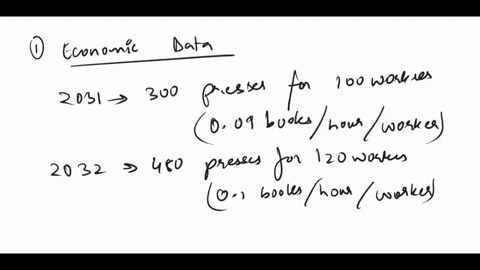 ① Economic Data
2031 → 300 presses for 100 workers
(0.09 books/hour/worker)
2032 → 480 presses for 120 workers
(0.1 books/hour/worker)